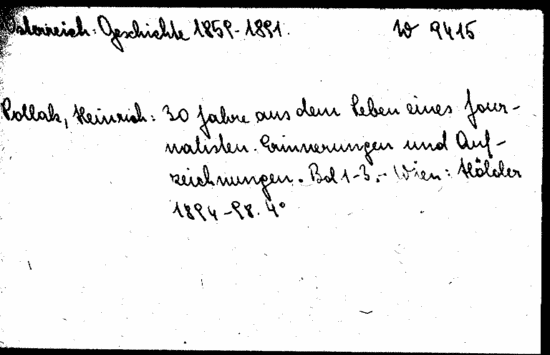 Österreich: Geschichte 1859-1891. W 9415
Pollak, Heinrich: 30 Jahre aus dem Leben eines Jour-
nalisten. Erinnerungen und Auf-
zeichnungen. Bd 1-3.- Wien: Hölder
1894-98. 4°